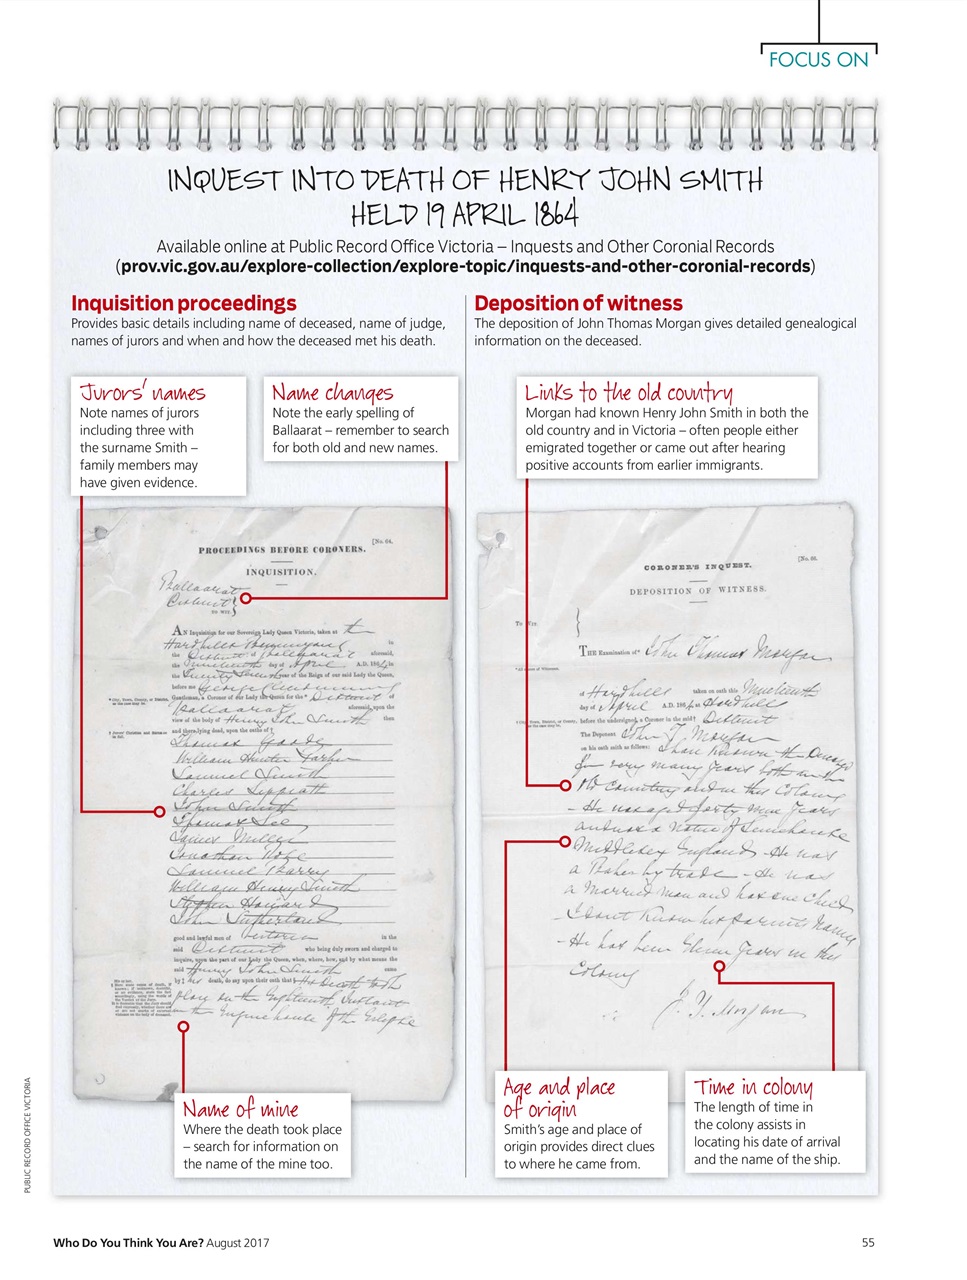 FOCUS ON
INQUEST INTO DEATH OF HENRY JOHN SMITH
HELD 19 APRIL 1864
Available online at Public Record Office Victoria – Inquests and Other Coronial Records
(prov.vic.gov.au/explore-collection/explore-topic/inquests-and-other-coronial-records)
Inquisition proceedings
Provides basic details including name of deceased, name of judge,
names of jurors and when and how the deceased met his death.
Jurors' names
Note names of jurors
including three with
the surname Smith –
family members may
have given evidence.
Name changes
Note the early spelling of
Ballaarat – remember to search
for both old and new names.
[No. 64.
PROCEEDINGS BEFORE CORONERS.
INQUISITION.
Ballaarat
District
TO WIT.
AN Inquisition for our Sovereign Lady Queen Victoria, taken at the
in
the District of Ballaarat aforesaid,
the Nineteenth day of April A.D. 186 in
the Twenty Seventh year of the Reign of our said Lady the Queen,
before me George
Gentleman, a Coroner of our Lady the Queen for the District of
Ballaarat aforesaid, upon the
view of the body of Henry John Smith then
and there lying dead, upon the oaths of
Thomas
William Hunter
Samuel Smith
Charles
John Smith
Thomas
James Miller
Jonathan
Samuel Barry
William Henry Smith
Stephen Howard
John Sutherland
good and lawful men of Victoria in the
said District who being duly sworn and charged to
inquire, upon the part of our Lady the Queen, when, where, how, and by what means the
said Henry John Smith came
by his death, do say upon their oath that His Death took
place on the Eighteenth Instant
in the Engine house of the
Name of mine
Where the death took place
– search for information on
the name of the mine too.
Deposition of witness
The deposition of John Thomas Morgan gives detailed genealogical
information on the deceased.
Links to the old country
Morgan had known Henry John Smith in both the
old country and in Victoria – often people either
emigrated together or came out after hearing
positive accounts from earlier immigrants.
CORONER'S INQUEST.
DEPOSITION OF WITNESS.
THE Examination of John Thomas Morgan
at Hardhills taken on oath this Nineteenth
day of April A.D. 186 at Hardhills
before the undersigned, a Coroner in the said District
The Deponent John T. Morgan
on his oath saith as follows: I have Known the
for very many years both in the
Old Country and in this Colony
– He was aged forty nine Years
and was a Native of
Middlesex England – He was
a Baker by trade – He was
a Married man and has one Child
– I dont Know his parents Names
– He has been Eleven Years in this
Colony
J. T. Morgan
Age and place
of origin
Smith's age and place of
origin provides direct clues
to where he came from.
Time in colony
The length of time in
the colony assists in
locating his date of arrival
and the name of the ship.
PUBLIC RECORD OFFICE VICTORIA
Who Do You Think You Are? August 2017
55